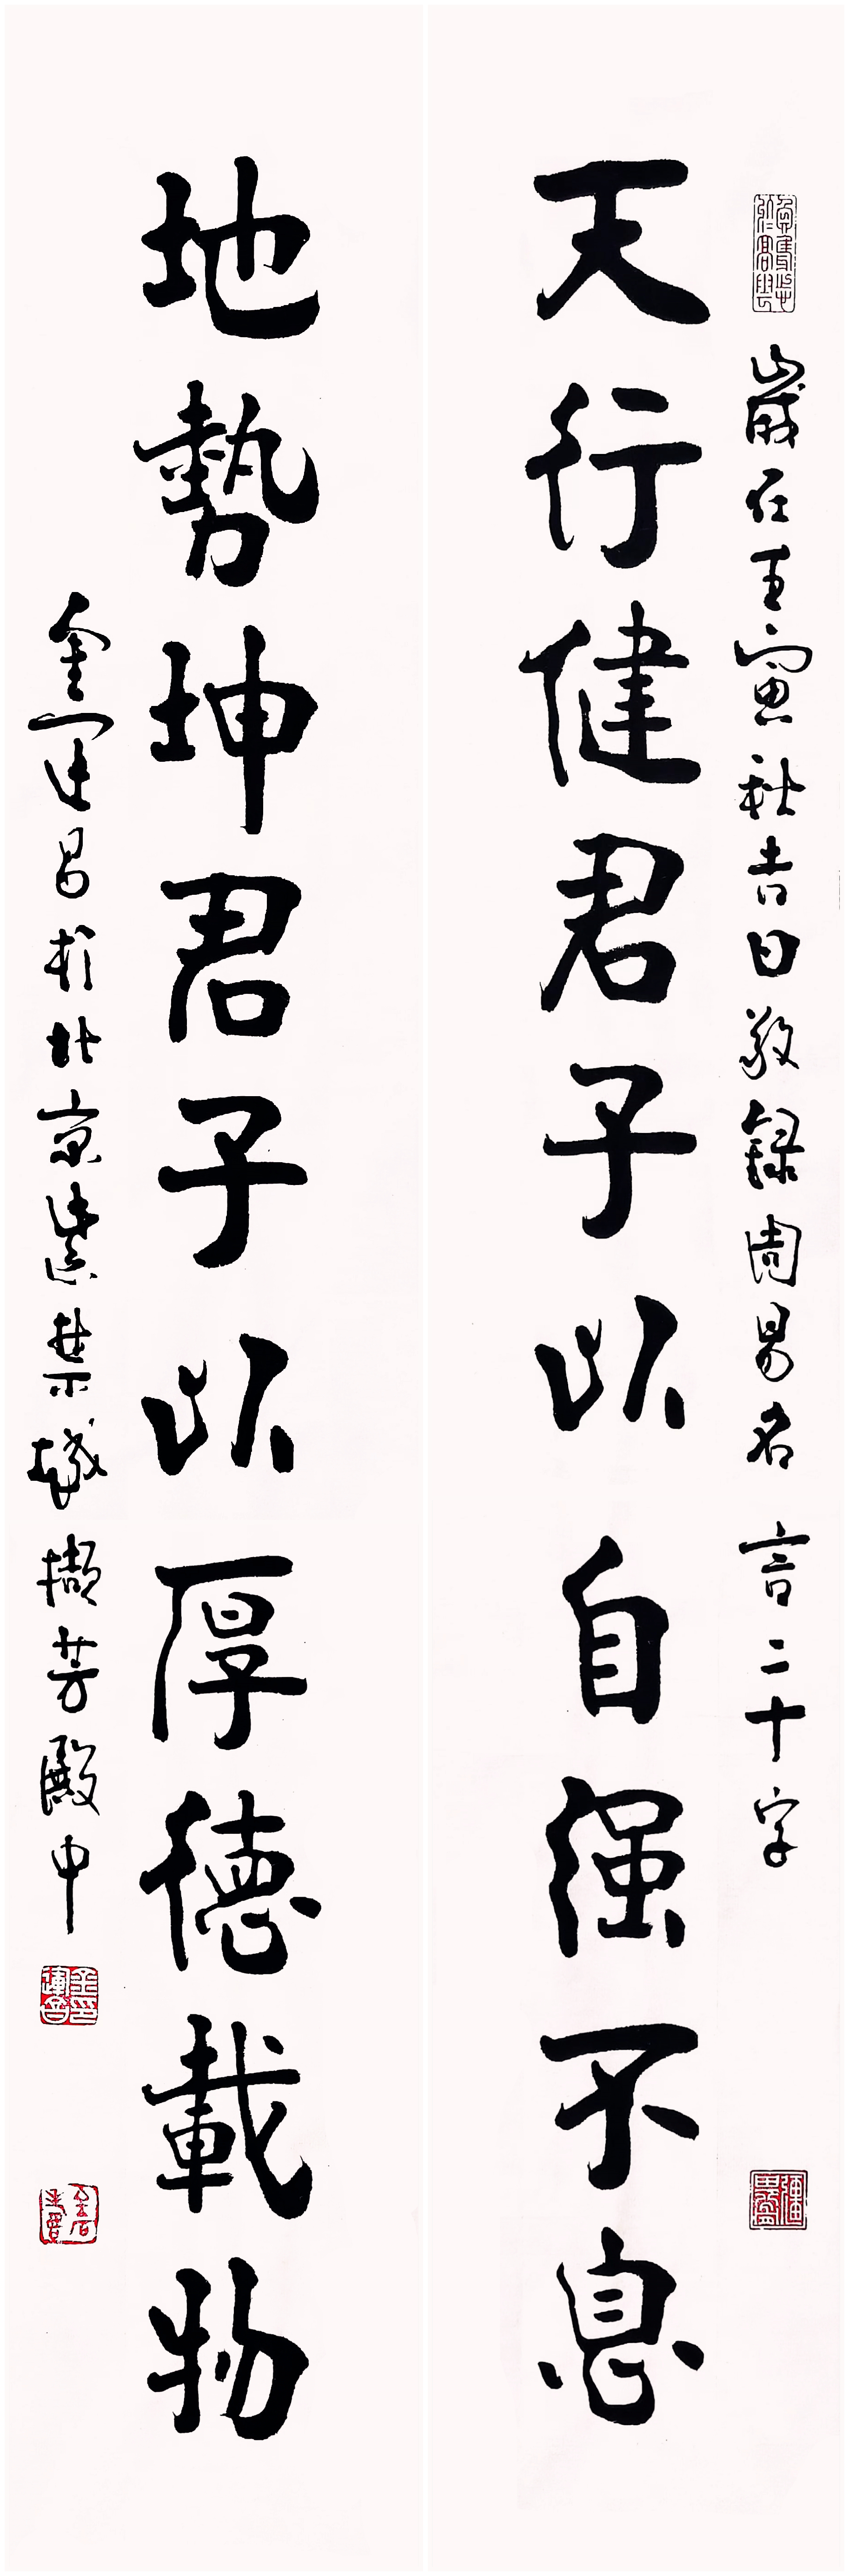 歲在壬寅秋吉日敬録周易名言二十字
天行健君子以自强不息
地勢坤君子以厚德載物
金運昌於北京禁城擷芳殿中